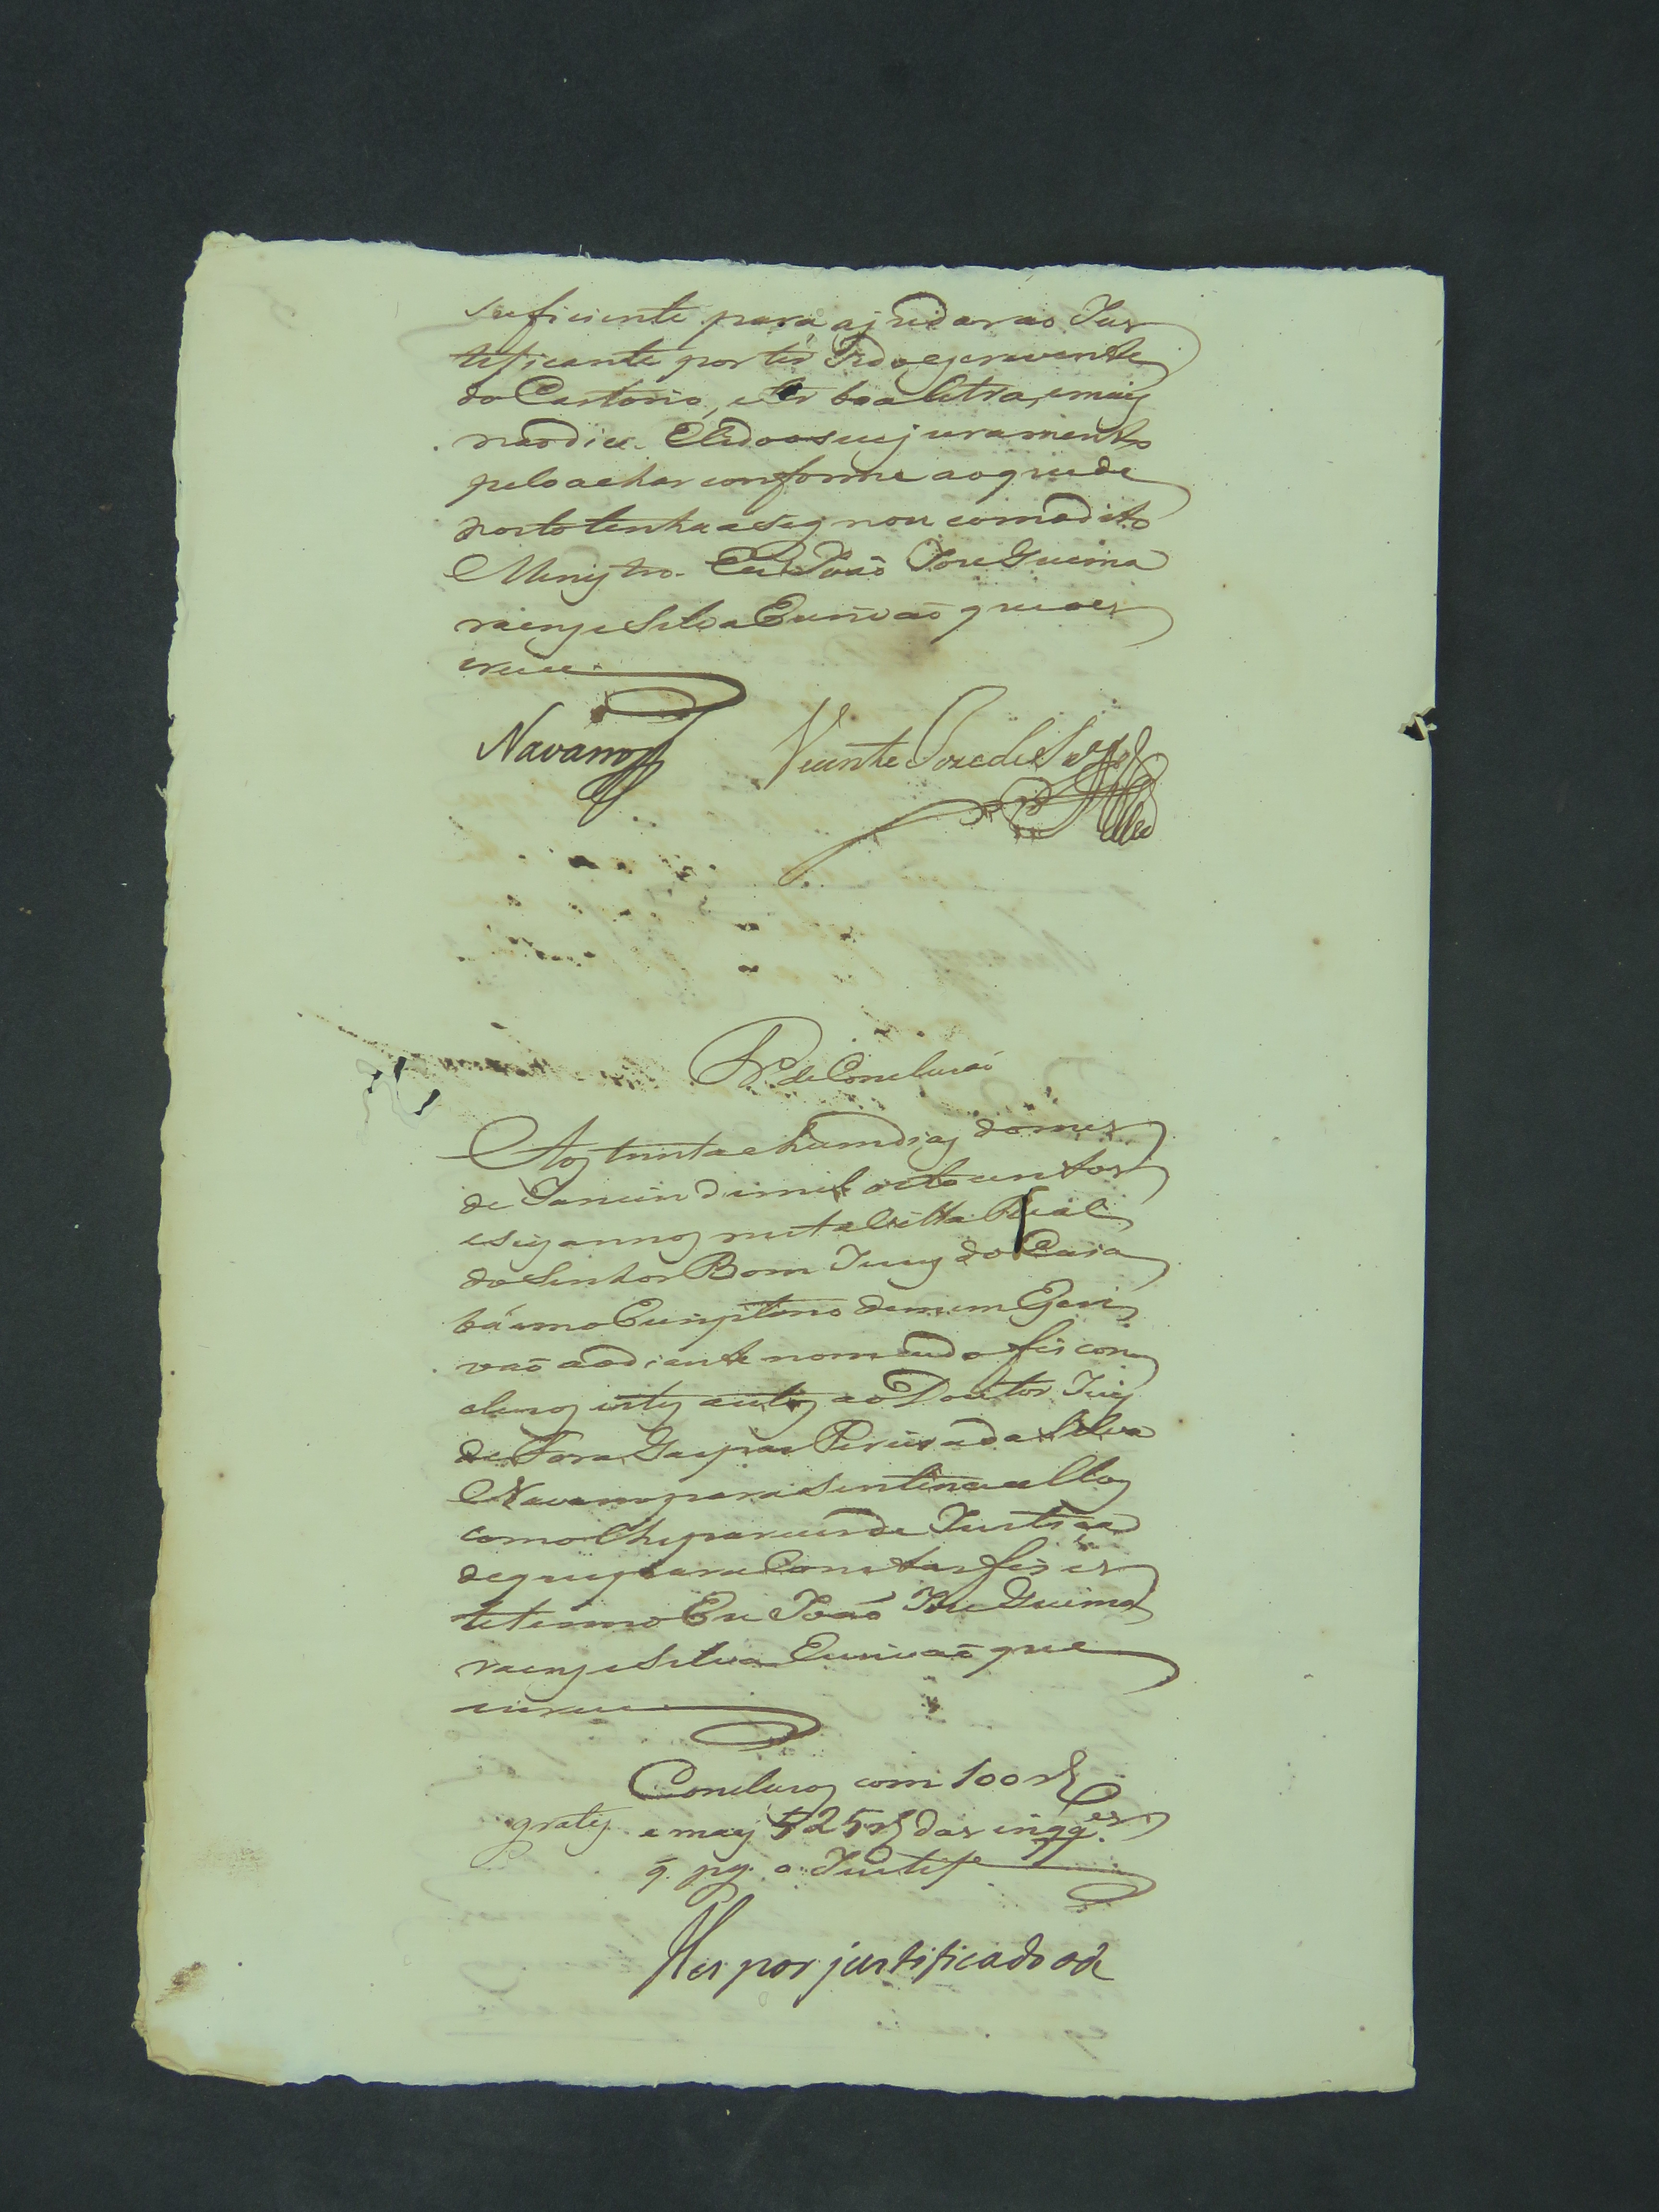 suficiente para ajudar ao Jus
teficante por ter sido escrevente
do Cartorio, e ter boa letra, e mais
naõ dice. E lido o seu juramento
pelo achar conforme ao que de
posto tenha aseg nou com o dito
Menistro. Eu Joaõ Joze Guima
raens e Silva Escrivaõ que o es
crevi
Navarro Vicente Joze de
de Concluzaõ
Aos trinta e hum dias do mes
de Janeiro de mil oito centos
e seis annos nesta Villa Real
do Senhor Bom Jesus do Cuia
bá em o Escriptorio de mim Escri
vaõ ao diante nomeado fis con
cluzos estes autos ao Doutor Juis
de Fora Gaspar Pereira da Silva
Navarro para sentencea llos
como lhe parecer de Justiça
de que para Constar fis es
te termo Eu Joaõ Joze Guima
raens e Silva Escrivaõ que
escrevi
Concluzos com 100 rs
gratis e mais 525 rs das inqq.es
q. pg. o Justife
Hei por justificado o de